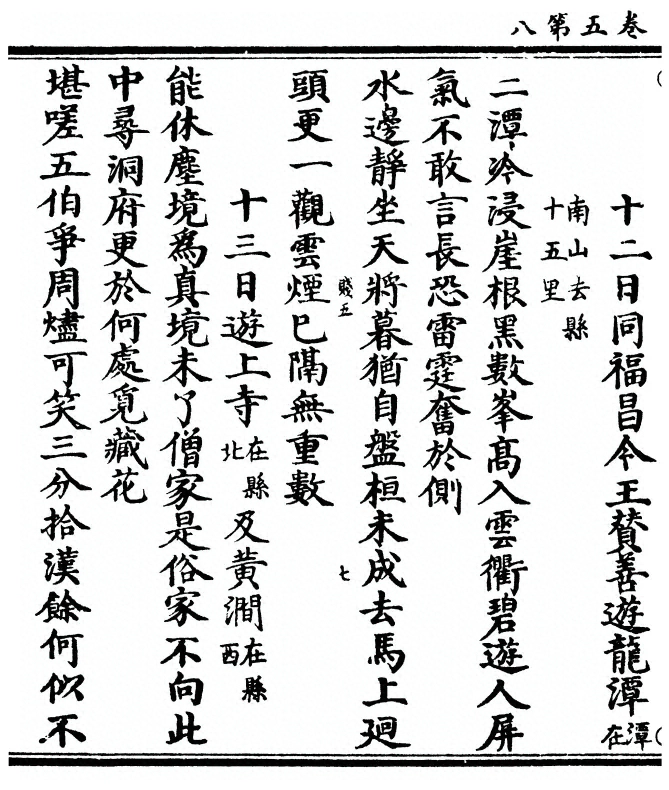 卷五第八
十二日同福昌令王贊善遊龍潭潭在
南山去縣
十五里
二潭冷浸崖根黑數峯高入雲衢碧遊人屏
氣不敢言長恐雷霆奮於側
水邊靜坐天將暮猶自盤桓未成去馬上廻
賤五 七
頭更一觀雲煙已隔無重數
十三日遊上寺在縣北及黃澗在縣西
能休塵境爲真境未了僧家是俗家不向此
中尋洞府更於何處覓藏花
堪嗟五伯爭周燼可笑三分拾漢餘何似不